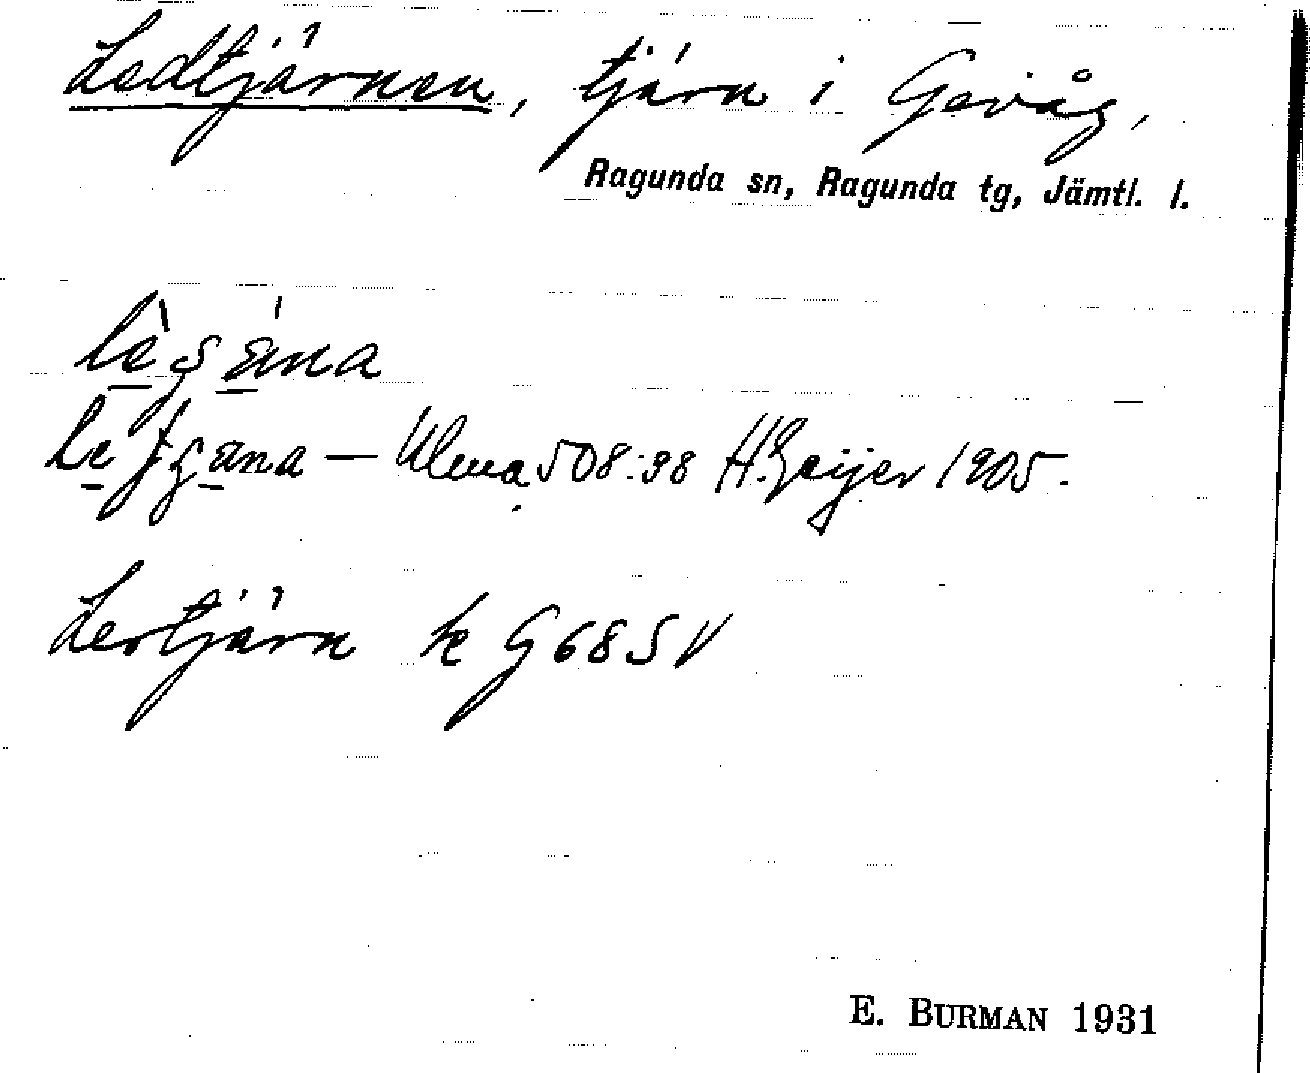 Ledtjärnen, tjärn i Gevåg,
Ragunda sn, Ragunda tg, Jämtl. l.
Ulma 508:98 H. Geijer 1905.
Lertjärn k G 68 SV
E. BURMAN 1931